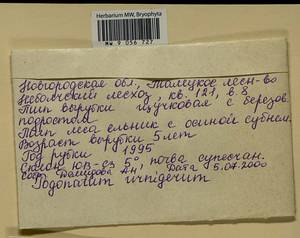 Herbarium MW, Bryophyta
MW 9 056 727
Новгородская обл., Талецкое лесн-во
Неболчский лесхоз, кв. 121, в. 8
Тип вырубки щучковая с березов.
подростом
Тип леса ельник с осиной субнем.
Возраст вырубки 5 лет
Год рубки 1995
Склон юв-сз 5° почва супесчан.
Собр. Демидова А.Н. Дата 5.07.2000